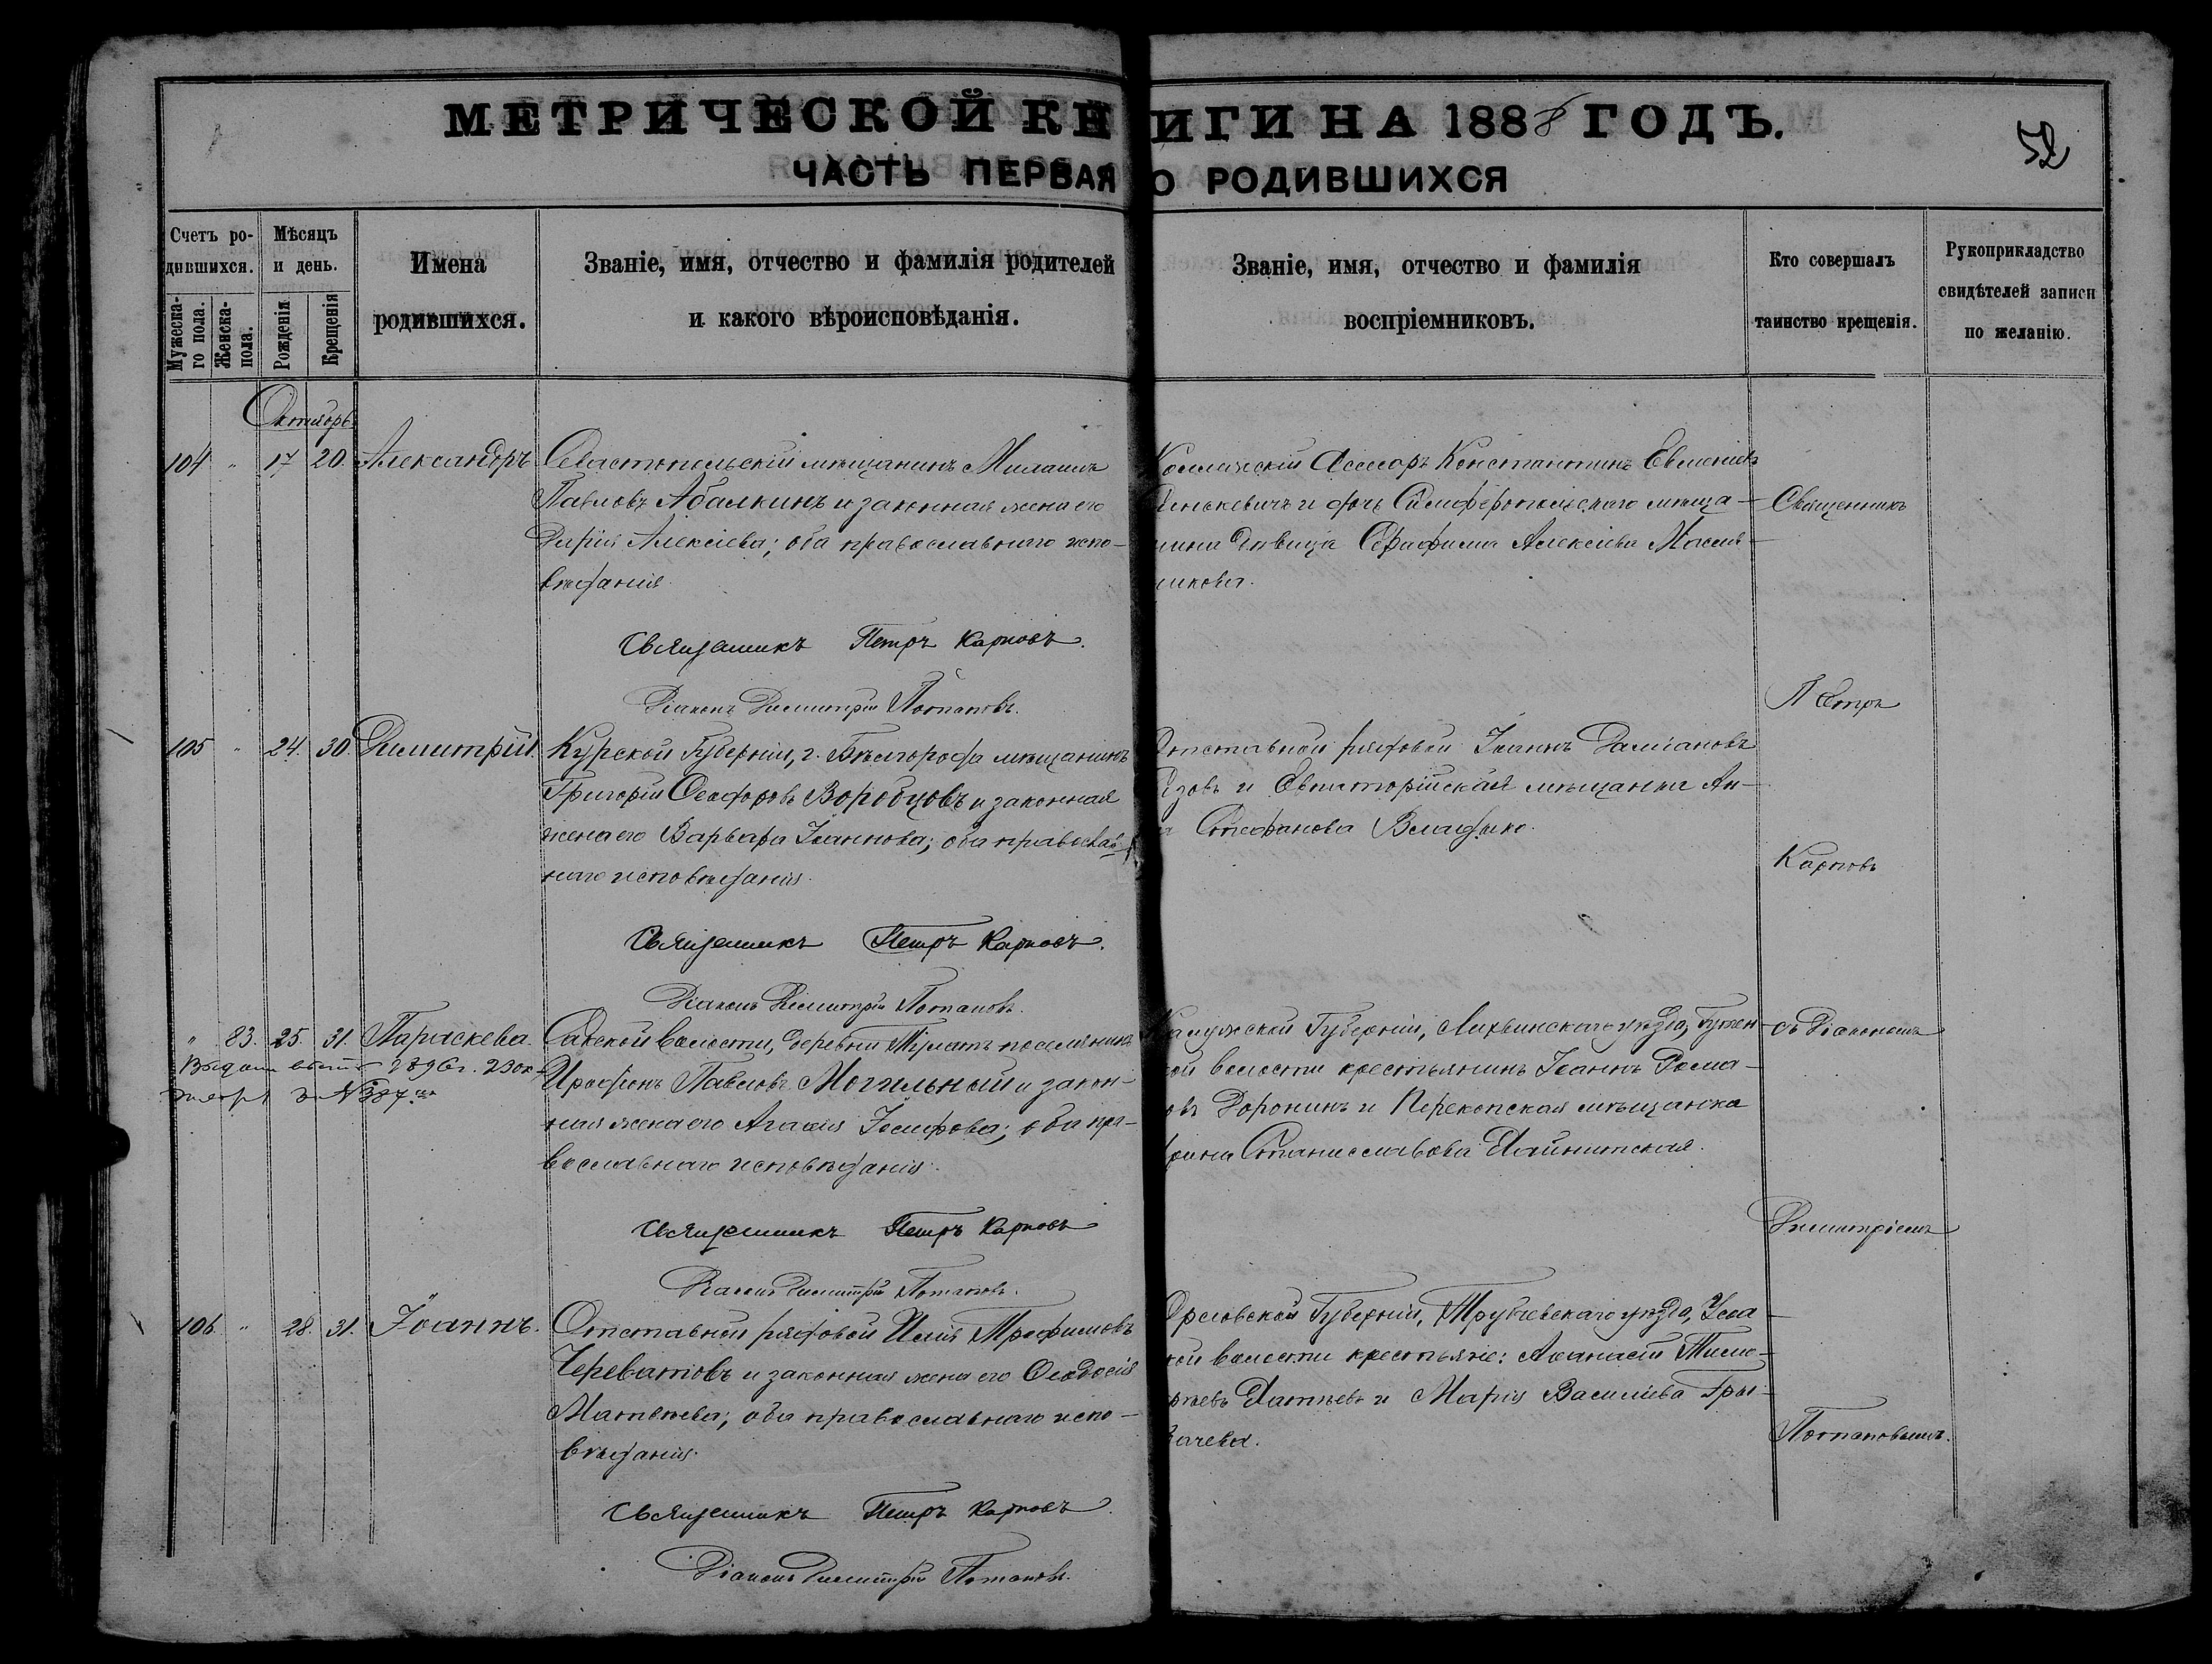 МЕТРИЧЕСКОЙ КНИГИ НА 1888 ГОДЪ.
ЧАСТЬ ПЕРВАЯ О РОДИВШИХСЯ
52
Счетъ родившихся.
Мужескаго пола.
Женска- пола.
Мѣсяцъ и день.
Рожденія
Крещенія
Имена
родившихся.
Званіе, имя, отчество и фамилія родителей
и какого вѣроисповѣданія.
Званіе, имя, отчество и фамилія
воспріемниковъ.
Кто совершалъ
таинство крещенія.
Рукоприкладство
свидѣтелей записи
по желанію.
Октябрь
104 " 17 20. Александръ
Севастопольскій мѣщанинъ
Павловъ Абалкинъ и законная жена его
Дарія Алексіева; оба православнаго испо-
вѣданія.
Священникъ Петръ Карповъ.
Діаконъ Димитрій Потаповъ.
Асессоръ Константинъ
и дочь Симферопольскаго мѣща-
дѣвица Серафима Алексіева
105 " 24. 30. Димитрій.
Курской Губерніи, г. Бѣлгорода мѣщанинъ
Григорій Ѳеодоровъ Воробцовъ и законная
жена его Варвара Іоаннова; оба православ-
наго исповѣданія.
Священникъ Петръ Карповъ.
Діаконъ Димитрій Потаповъ.
Отставной рядовой Іоаннъ Даміановъ
и Евпаторійская мѣщанка Ан-
Стефанова
" 83. 25. 31. Параскева.
1896 г.
Сакской волости, деревни поселянинъ
Павловъ Могильный и закон-
ная жена его Агаѳія Іосифова; оба пра-
вославнаго исповѣданія.
Священникъ Петръ Карповъ
Діаконъ Димитрій Потаповъ.
Калужской Губерніи, Лихвинскаго уѣзда,
волости крестьянинъ Іоаннъ Рома-
овъ Доронинъ и Перекопская мѣщанка
Станиславова
106. " 28. 31. Іоаннъ.
Отставной рядовой Илія Трофимовъ
Череватовъ и законная жена его Ѳеодосія
Матвѣева; оба православнаго испо-
вѣданія.
Священникъ Петръ Карповъ.
Діаконъ Димитрій Потаповъ.
Орловской Губерніи, Трубчевскаго уѣзда,
волости крестьяне: Аѳанасій Тимо-
и Марія Василіева
Священникъ
Петръ
Карповъ
съ Діакономъ
Димитріемъ
Потаповымъ.